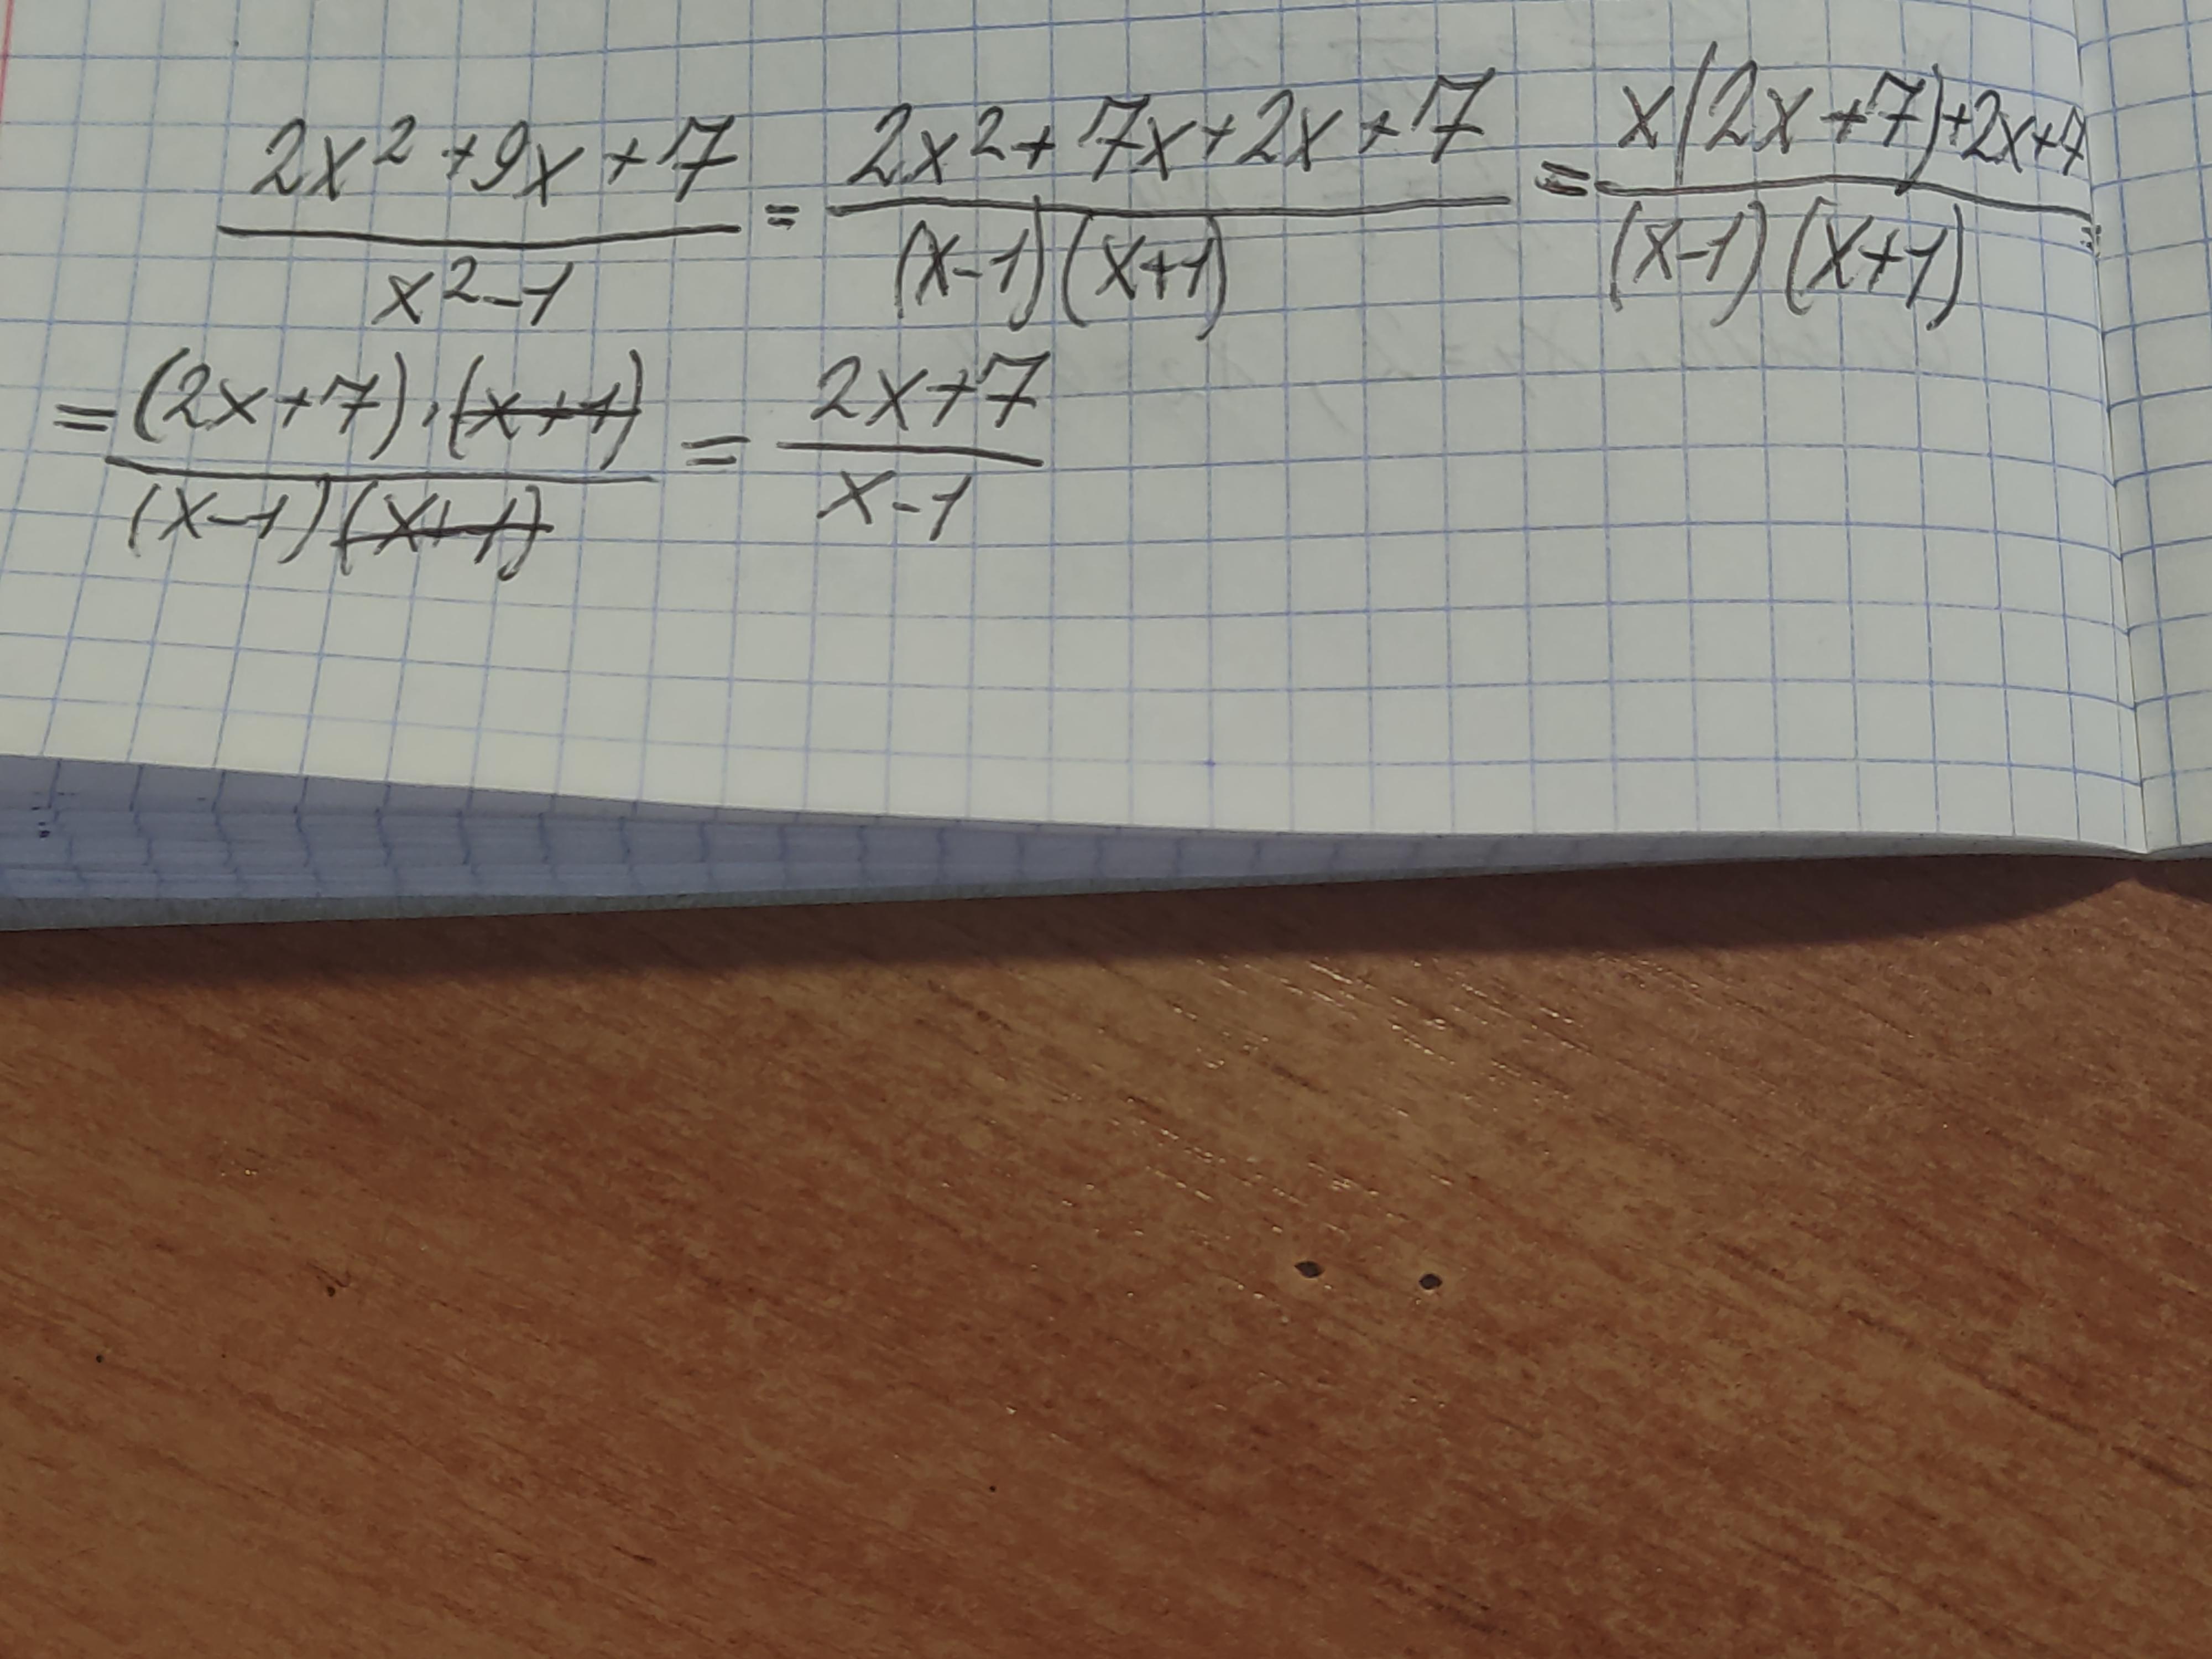 (2x²+9x+7)/(x²-1) = (2x²+7x+2x+7)/((x-1)(x+1)) = (x(2x+7)+2x+7)/((x-1)(x+1)) =
= ((2x+7)·(x+1))/((x-1)(x+1)) = (2x+7)/(x-1)